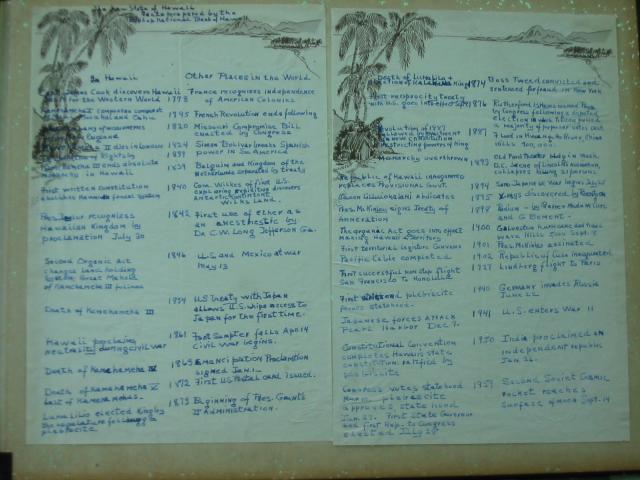 State of Hawaii
prepared by the
National Bank of Hawaii
In Hawaii
Other Places in the World
Cook discovers Hawaii
for the Western World 1778
France recognizes independence
of American Colonies
1795 French Revolution ends following
1820 Missouri Compromise Bill
enacted by Congress
1824 Simon Bolivar breaks Spanish
power in So America
1839 Belgium and Kingdom of the
Netherlands separated by treaty
First written constitution
1840 Com. Wilkes of first U.S.
exploring expedition discovers
Antarctic Continent
Wilkes Land.
recognizes
Hawaiian Kingdom by
proclamation July 30
1842 First use of ether as
an anesthetic by
Dr. C.W. Long Jefferson Ga.
Second Organic Act
changes land holding
system Great Mahele
of Kamehameha III
1846 U.S. and Mexico at war
May 13
Death of Kamehameha III
1854 U.S. Treaty with Japan
allows U.S. ships access to
Japan for the first time.
Hawaii proclaims
neutrality during civil war
1861 Fort Sumpter falls Apr 14
Civil war begins.
Death of Kamehameha IV
1863 Emancipation Proclamation
signed Jan 1.
Death of Kamehameha V
last of Kamehamehas.
1872 First U.S. Postal card issued.
Lunalilo elected King by
the legislature following a
plebescite
1873 Beginning of Pres. Grant's
II Administration.
Death of Lunalilo +
1874 Boss Tweed convicted and
sentenced for fraud in New York
reciprocity treaty
with U.S. goes into effect Sept 9
1876 Rutherford B. Hayes named Pres.
by Congress following a disputed
election
a majority of popular votes cast
Revolution of 1887
1887 Flood in Hwang-ho River, China
kills 900,000.
Monarchy overthrown
1893
scene of Lincoln assassination,
collapses killing
Republic of Hawaii inaugurated
replaces Provisional Govt.
1894 Sino Japanese War begins
Queen Liliuokalani abdicates
1895 X-rays discovered by
Pres. McKinley signs Treaty of
Annexation
1898 Radium by Pierre Madame Curie
and G Bemont.
The organic Act goes into effect
making Hawaii a Territory
1900 Galveston hurricane and tidal
wave kills Sept. 8
First territorial legislature convenes
1901 Pres. McKinley assinated
Pacific Cable completed
1902 Republic of Cuba inaugurated
First successful non stop flight
San Francisco to Honolulu
1927 Lindberg flight to Paris
First plebescite
favors statehood.
1940 Germany invades Russia
June 22
Japanese forces attack
Pearl Harbor Dec 7.
1941 U.S. enters War II
Constitutional Convention
completes Hawaii's state
constitution ratified by
plebiscite
1950 India proclaimed an
independent republic
Jan. 26.
Congress votes statehood
plebescite
approves state hood
June 27. First state Governor
and first Rep. to Congress
elected July 28
1959 Second Soviet Cosmic
rocket reaches
surface of moon Sept. 14